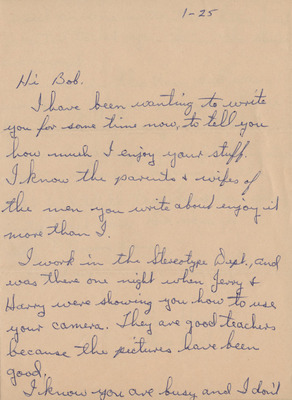 1-25
Hi Bob.
I have been wanting to write
you for some time now, to tell you
how much I enjoy your stuff.
I know the parents & wifes of
the men you write about enjoy it
more than I.
I work in the Stereotype Dept., and
was there one night when Jerry &
Harry were showing you how to use
your camera. They are good teachers
because the pictures have been
good.
I know you are busy and I don't